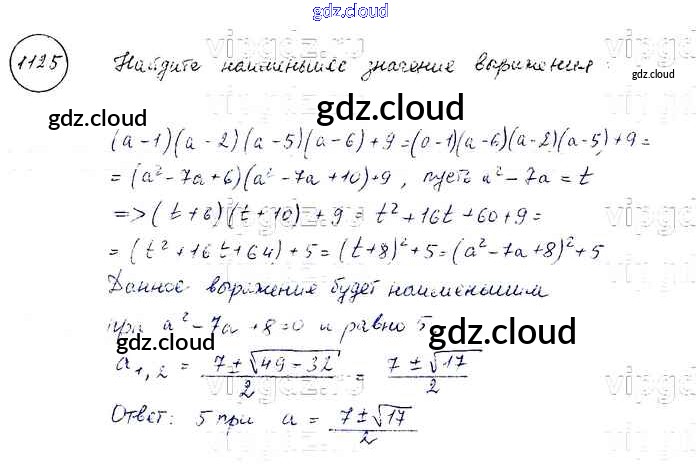 gdz.cloud
1125 Найдите наименьшее значение выражения:
gdz.cloud
gdz.cloud gdz.cloud
(a-1)(a-2)(a-5)(a-6)+9=(a-1)(a-6)(a-2)(a-5)+9=
=(a²-7a+6)(a²-7a+10)+9, пусть a²-7a=t
=>(t+6)(t+10)+9=t²+16t+60+9=
=(t²+16t+64)+5=(t+8)²+5=(a²-7a+8)²+5
Данное выражение будет наименьшим
при a²-7a+8=0 и равно 5
gdz.cloud gdz.cloud
a₁,₂ = (7±√49-32)/2 = (7±√17)/2
Ответ: 5 при a = (7±√17)/2
gdz.cloud gdz.cloud